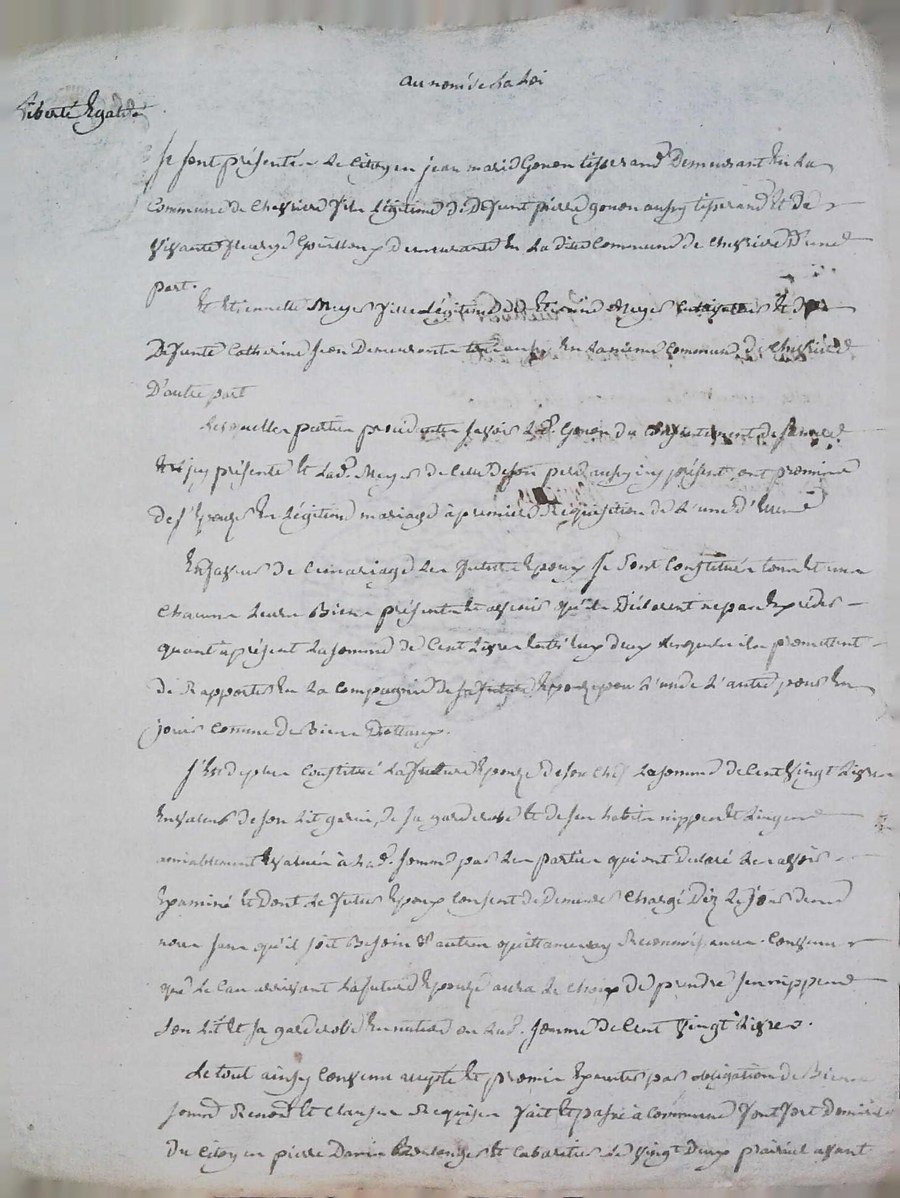 au nom de la Loi
Liberté Egalité
Se sont présentés le Citoyen jean marie Gonon tisserand Demeurant En la
Commune de Chevriere fils légitime de Defunt pierre gonon aussy tisserand Et de
vivante fleurye Demeurante En la dite Commune de Chevriere D'une
part.
Et Etiennette Meyer fille légitime de Etienne Meyer Et de
Defunte Catherine Demeurante aussy En la meme Commune de Chevriere
D'autre part
Lesquelles parties procedantes savoir led. Gonon du Consentement de sa mere
icy présente Et lad. Meyer de celui de son pere aussy icy présent, ont promis
de s'Epouser En légitime mariage à premiere Requisition de L'une d'Elle
En faveur de Ce mariage les futurs Epoux se sont Constitués tous Et un
Chacuns leurs Biens présents Et avenir qu'ils Déclarent ne pas Exceder
quant à présent la somme de Cent Livres Entr'eux deux lesquels ils promettent
de Rapporter En la Compagnie de Epoux pour L'un de L'autre pour En
jouir Comme de Biens Dottaux.
S'Est de plus Constitué la future Epouze de son Chef la somme de Cent vingt Livres
En valeur de son Lit garni, de sa garderobe Et de ses habits nippes Et Linges
amiablement Evalués à lad. somme par les parties qui ont Declaré les avoir
Examiné Et Dont le futur Epoux Consent de Demeurer Chargé Dez le jour de
noces sans qu'il soit Besoin d'autres quittances ny Reconnoissances. Convenu
que le Cas arrivant la future Epouze aura le Choix de prendre ses nippes
son Lit Et sa garderobe En nature ou lad. somme de Cent vingt Livres.
Le tout ainsy Convenu accepté Et promis Executer par obligation de Biens
soumis. Renon. Et Clauses Requises fait Et passé à Commune fontfort Domicile
Du Citoyen pierre Boulanger Et Cabaretier Le vingt Deux prairial avant